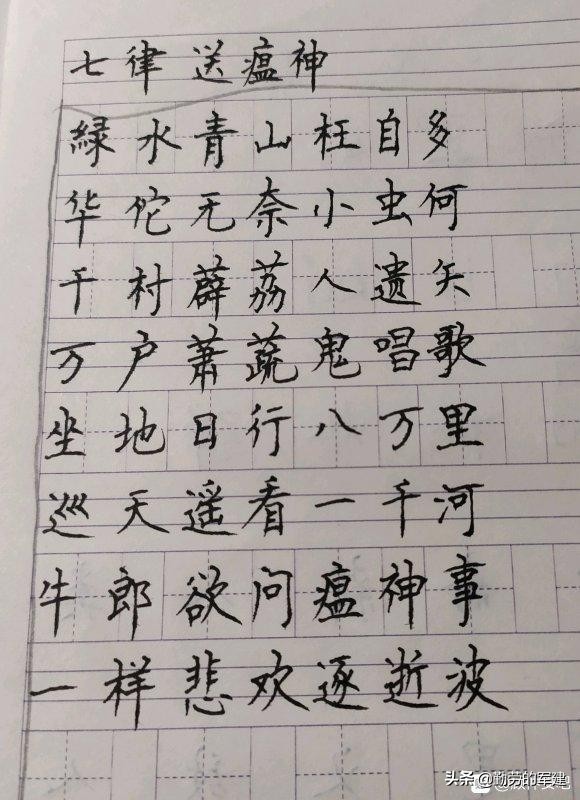 七律 送瘟神
緑水青山枉自多
华佗无奈小虫何
千村薜荔人遗矢
万户萧蔬鬼唱歌
坐地日行八万里
巡天遥看一千河
牛郎欲问瘟神事
一样悲欢逐逝波
头条 @勤劳的军建